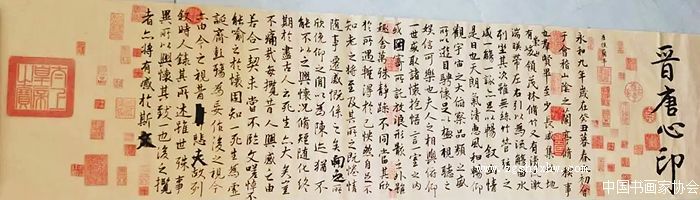 晋唐心印
永和九年歲在癸丑暮春之初會
于會稽山陰之蘭亭脩稧事
也群賢畢至少長咸集此地
有崇山峻領茂林脩竹又有清流激
湍暎帶左右引以為流觴曲水
列坐其次雖無絲竹管弦之
盛一觴一詠亦足以暢敘幽情
是日也天朗氣清惠風和暢仰
觀宇宙之大俯察品類之盛
所以遊目騁懷足以極視聽之
娛信可樂也夫人之相與俯仰
一世或取諸懷抱悟言一室之內
或因寄所託放浪形骸之外雖
趣舍萬殊靜躁不同當其欣
於所遇暫得於己怏然自足不
知老之將至及其所之既惓情
隨事遷感慨係之矣向之所
欣俛仰之閒以為陳迹猶不
能不以之興懷況脩短隨化終
期於盡古人云死生亦大矣豈
不痛哉每攬昔人興感之由
若合一契未嘗不臨文嗟悼不
能喻之於懷固知一死生為虛
誕齊彭殤為妄作後之視今
亦由今之視昔悲夫故列
敘時人錄其所述雖世殊事
異所以興懷其致一也後之攬
者亦將有感於斯文
中国书画家协会